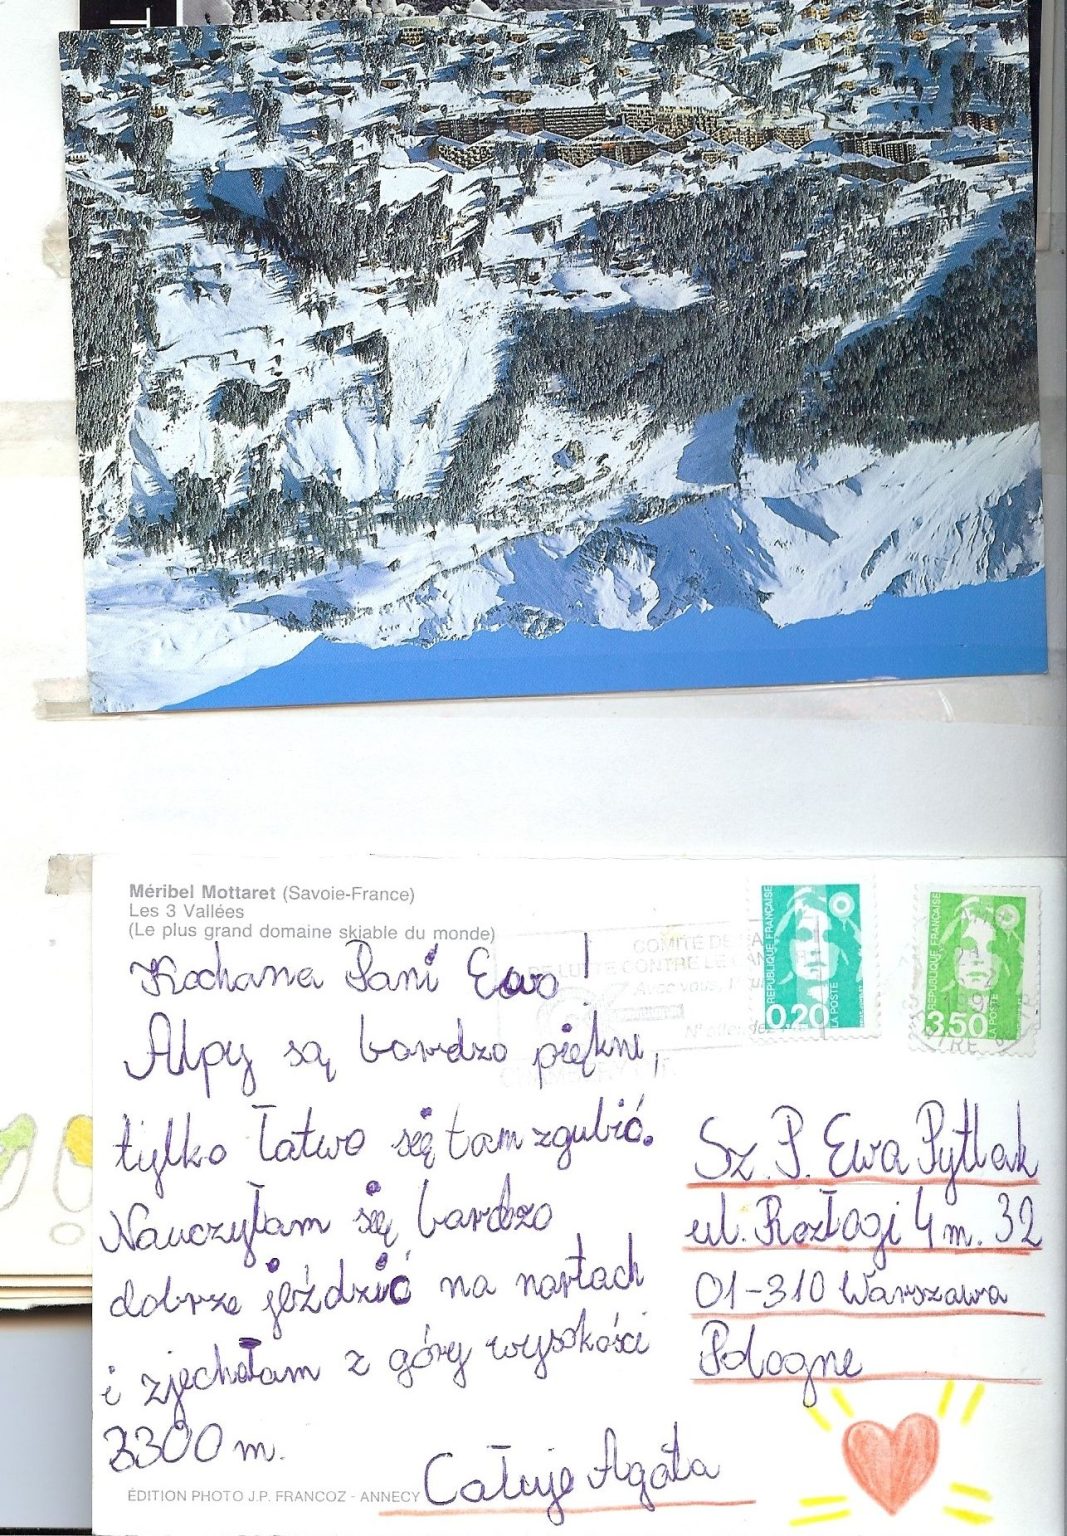 T
Méribel Mottaret (Savoie-France)
Les 3 Vallées
(Le plus grand domaine skiable du monde)
COMITÉ DE
LUTTE CONTRE LE CAN
Avec vous,
N'attendez
RÉPUBLIQUE FRANÇAISE
0,20
LA POSTE
RÉPUBLIQUE FRANÇAISE
3,50
LA POSTE
Kochana Pani Ewo!
Alpy są bardzo piękne,
tylko łatwo się tam zgubić.
Nauczyłam się bardzo
dobrze jeździć na nartach
i zjechałam z góry wysokości
3300 m.
Całuję Agata
Sz. P. Ewa Pytlak
ul. Rozłogi 4 m. 32
01-310 Warszawa
Pologne
ÉDITION PHOTO J.P. FRANCOZ - ANNECY